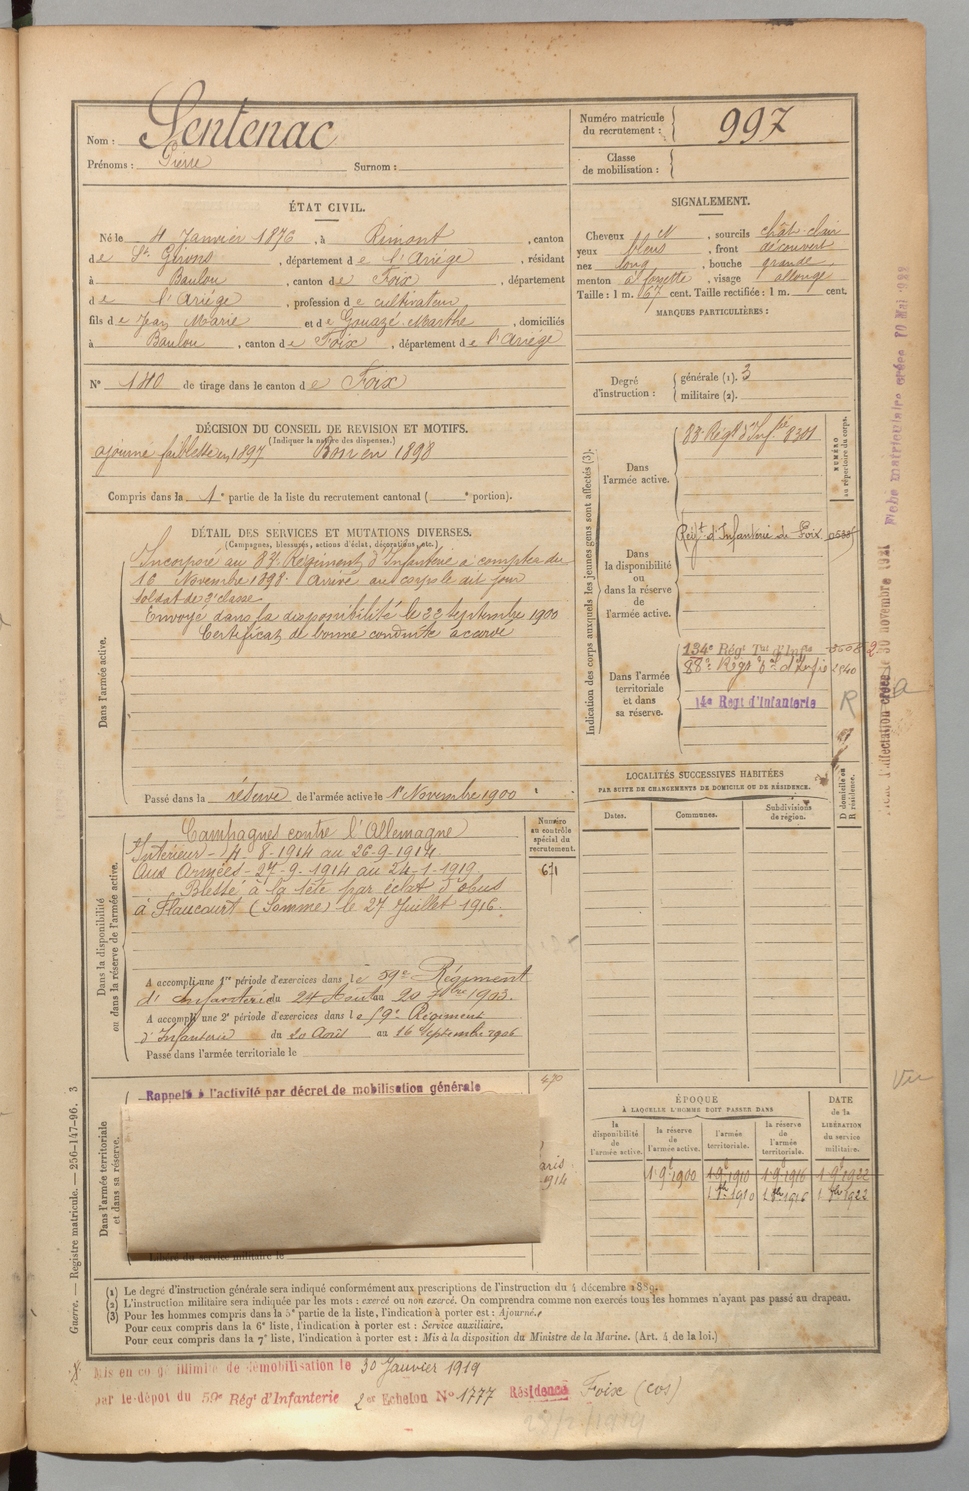 Nom : Sentenac
Prénoms : Pierre Surnom :
Numéro matricule du recrutement : 997
Classe de mobilisation :
ÉTAT CIVIL.
Né le 4 Janvier 1876, à Rimont, canton
de St Girons, département de l'Ariège, résidant
à Baulou, canton de Foix, département
de l'Ariège, profession de cultivateur,
fils de Jean Marie et de Gouazé Marthe, domiciliés
à Baulou, canton de Foix, département de l'Ariège
N° 140 de tirage dans le canton de Foix
SIGNALEMENT.
Cheveux , sourcils chât. clair
yeux bleus, front découvert
nez long, bouche grande
menton à fossette, visage allongé
Taille : 1 m. 67 cent. Taille rectifiée : 1 m. cent.
MARQUES PARTICULIÈRES :
Degré d'instruction : générale (1). 3
militaire (2).
DÉCISION DU CONSEIL DE REVISION ET MOTIFS.
(Indiquer la nature des dispenses.)
ajourné faiblesse en 1897 Bon en 1898
Compris dans la 1e partie de la liste du recrutement cantonal ( e portion).
DÉTAIL DES SERVICES ET MUTATIONS DIVERSES.
(Campagnes, blessures, actions d'éclat, décorations, etc.)
Dans l'armée active.
Incorporé au Régiment d'Infanterie à compter du
16 Novembre 1898. Arrivé au corps le dit jour
soldat de 2e classe
Envoyé dans la disponibilité le 22 Septembre 1900
Certificat de bonne conduite accordé
Passé dans la réserve de l'armée active le 1er Novembre 1900
Dans la disponibilité ou dans la réserve de l'armée active.
Campagnes contre l'Allemagne
Intérieur - 4-8-1914 au 26-9-1914
Aux Armées - 27-9-1914 au 24-1-1919
Blessé à la tête par éclat d'obus
à Flaucourt (Somme) le 27 Juillet 1916.
A accompli une 1re période d'exercices dans le 59e Régiment
d'Infanterie du 24 Août au 20 7bre 1903.
A accompli une 2e période d'exercices dans le 59e Régiment
d'Infanterie du 20 Août au 16 Septembre 1906
Passé dans l'armée territoriale le
Numéro au contrôle spécial du recrutement.
671
Dans l'armée territoriale et dans sa réserve.
Rappelé à l'activité par décret de mobilisation générale
Libéré du service militaire le
Indication des corps auxquels les jeunes gens sont affectés (3).
NUMÉRO au répertoire du corps.
Dans l'armée active.
Dans la disponibilité ou dans la réserve de l'armée active.
Régt d'Infanterie de Foix
Dans l'armée territoriale et dans sa réserve.
134e Régt Tal d'Infie
14e Regt d'Infanterie
R
LOCALITÉS SUCCESSIVES HABITÉES
PAR SUITE DE CHANGEMENTS DE DOMICILE OU DE RÉSIDENCE.
Dates. Communes. Subdivisions de région. D domicile ou R résidence.
ÉPOQUE
À LAQUELLE L'HOMME DOIT PASSER DANS
la disponibilité de l'armée active.
la réserve de l'armée active.
l'armée territoriale.
la réserve de l'armée territoriale.
DATE de la LIBÉRATION du service militaire.
(1) Le degré d'instruction générale sera indiqué conformément aux prescriptions de l'instruction du 4 décembre 1889.
(2) L'instruction militaire sera indiquée par les mots : exercé ou non exercé. On comprendra comme non exercés tous les hommes n'ayant pas passé au drapeau.
(3) Pour les hommes compris dans la 5e partie de la liste, l'indication à porter est : Ajourné.
Pour ceux compris dans la 6e liste, l'indication à porter est : Service auxiliaire.
Pour ceux compris dans la 7e liste, l'indication à porter est : Mis à la disposition du Ministre de la Marine. (Art. 4 de la loi.)
Mis en congé illimité de démobilisation le 30 Janvier 1919
par le dépôt du 59e Régt d'Infanterie 2er Echelon N° 1777 Résidence Foix (cos)
Guerre. — Registre matricule. — 256-147-96. 3
Vu